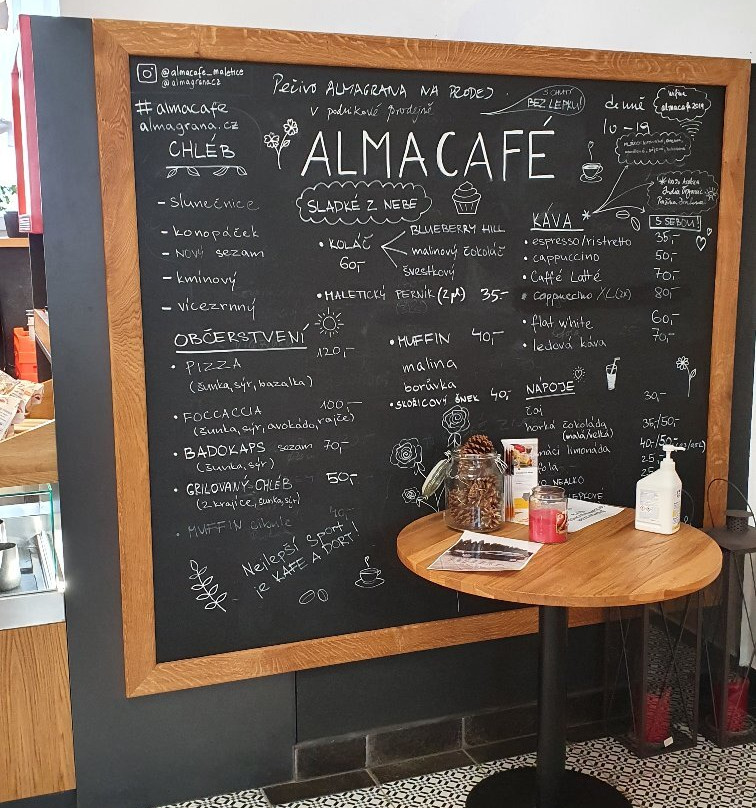 @almacafe_maletice
@almagranacz
#almacafe
almagrana.cz
Pečivo ALMAGRANA NA PRODEJ
v podnikové prodejně
BEZ LEPKU!
denně
10-19
ALMACAFÉ
CHLÉB
- slunečnice
- konopáček
- NOVÝ sezam
- kmínový
- vícezrnný
OBČERSTVENÍ
• PIZZA 120,-
(šunka, sýr, bazalka)
• FOCCACCIA 100,-
(šunka, sýr, avokádo, rajče)
• BADOKAPS sezam 70,-
(šunka, sýr)
• GRILOVANÝ CHLÉB 50,-
(2 krajíce, šunka, sýr)
• MUFFIN 40,-
Nejlepší sport
je KAFE A DORT!
SLADKÉ Z NEBE
• KOLÁČ
60,-
BLUEBERRY HILL
malinový čokoláč
švestkový
• MALETICKÝ PERNÍK (2 pl) 35,-
• MUFFIN 40,-
malina
borůvka
• SKOŘICOVÝ ŠNEK 40,-
KÁVA
S SEBOU!
• espresso/ristretto 35,-
• cappuccino 50,-
• Caffé Latté 70,-
• cappuccino XL (2x) 80,-
• flat white 60,-
• ledová káva 70,-
NÁPOJE
čaj 30,-
horká čokoláda 35/50,-
(malá/velká)
limonáda
NEALKO